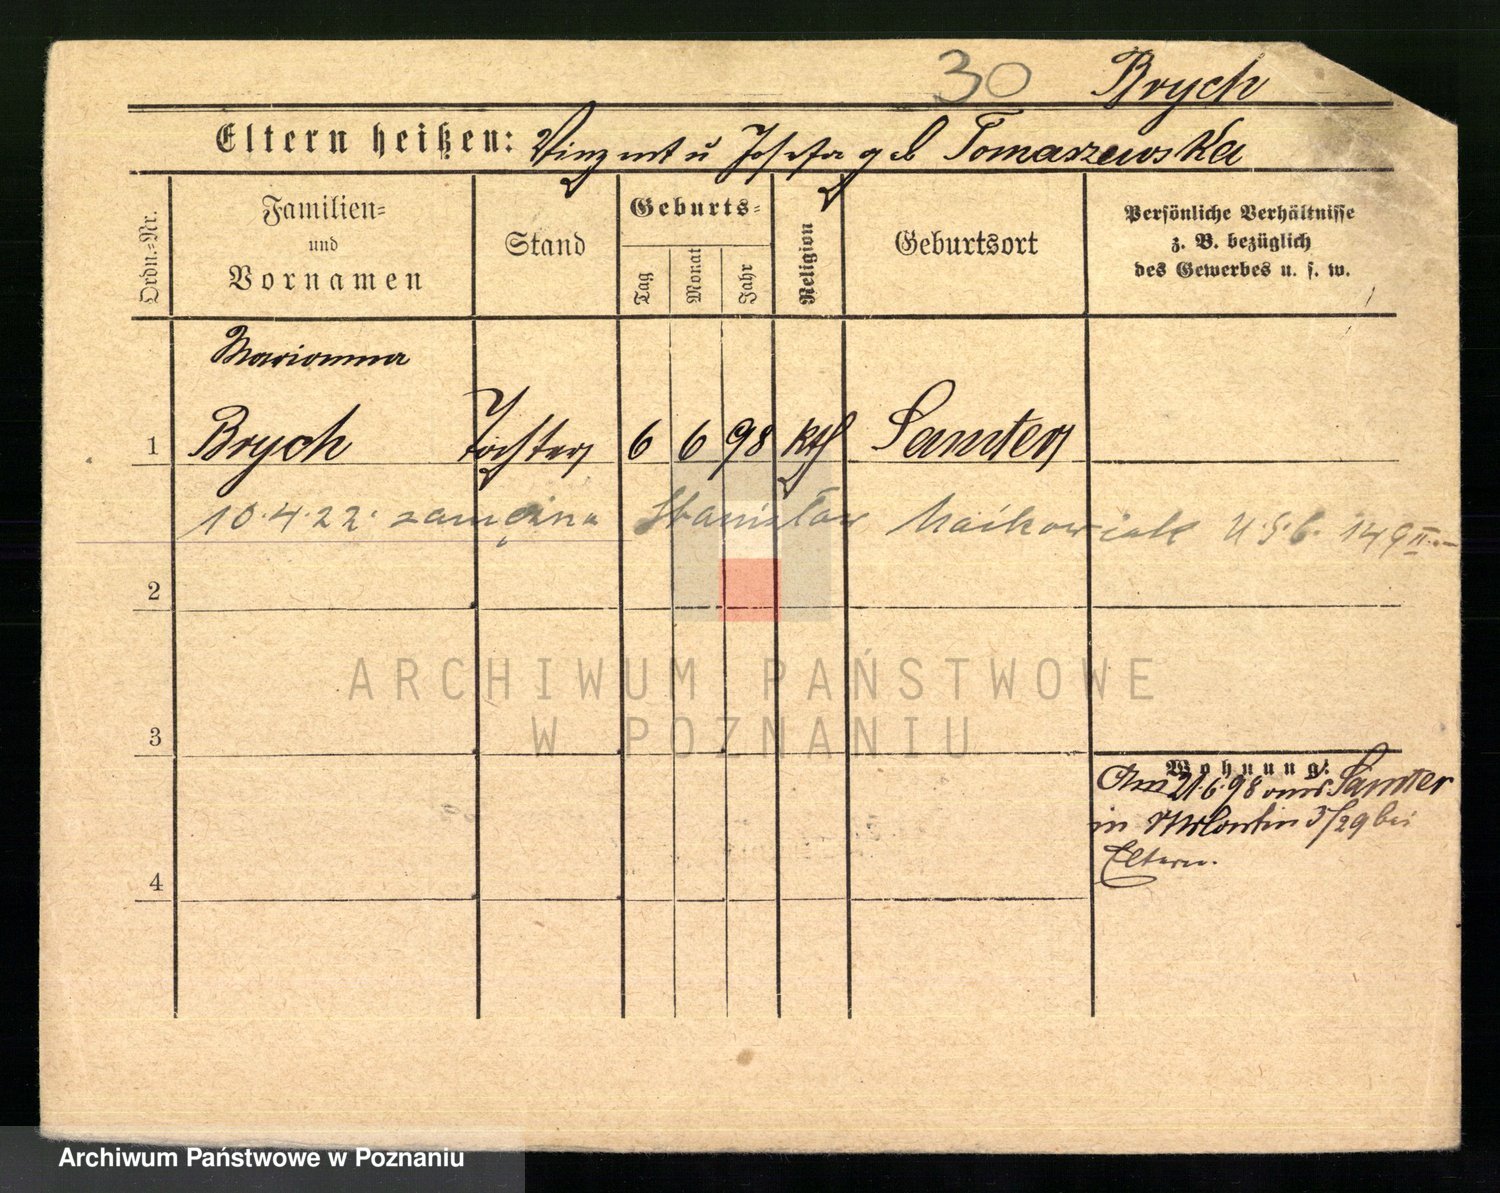 30 Brych
Eltern heißen: Vinzent u Josefa geb Tomaszewska
Ordn.-Nr.
Familien-
und
Vornamen
Stand
Geburts-
Tag
Monat
Jahr
Religion
Geburtsort
Persönliche Verhältnisse
z. B. bezüglich
des Gewerbes u. s. w.
Marianna
1 Brych Tochter 6 6 98 kth Samter
10.4.22. zamężna Stanisław Maikowiak U.S.C. 149 II
2
ARCHIWUM PAŃSTWOWE
W POZNANIU
3
Wohnung:
Am 21.6.98 aus Samter
in 5/29 bei
Eltern.
4
Archiwum Państwowe w Poznaniu